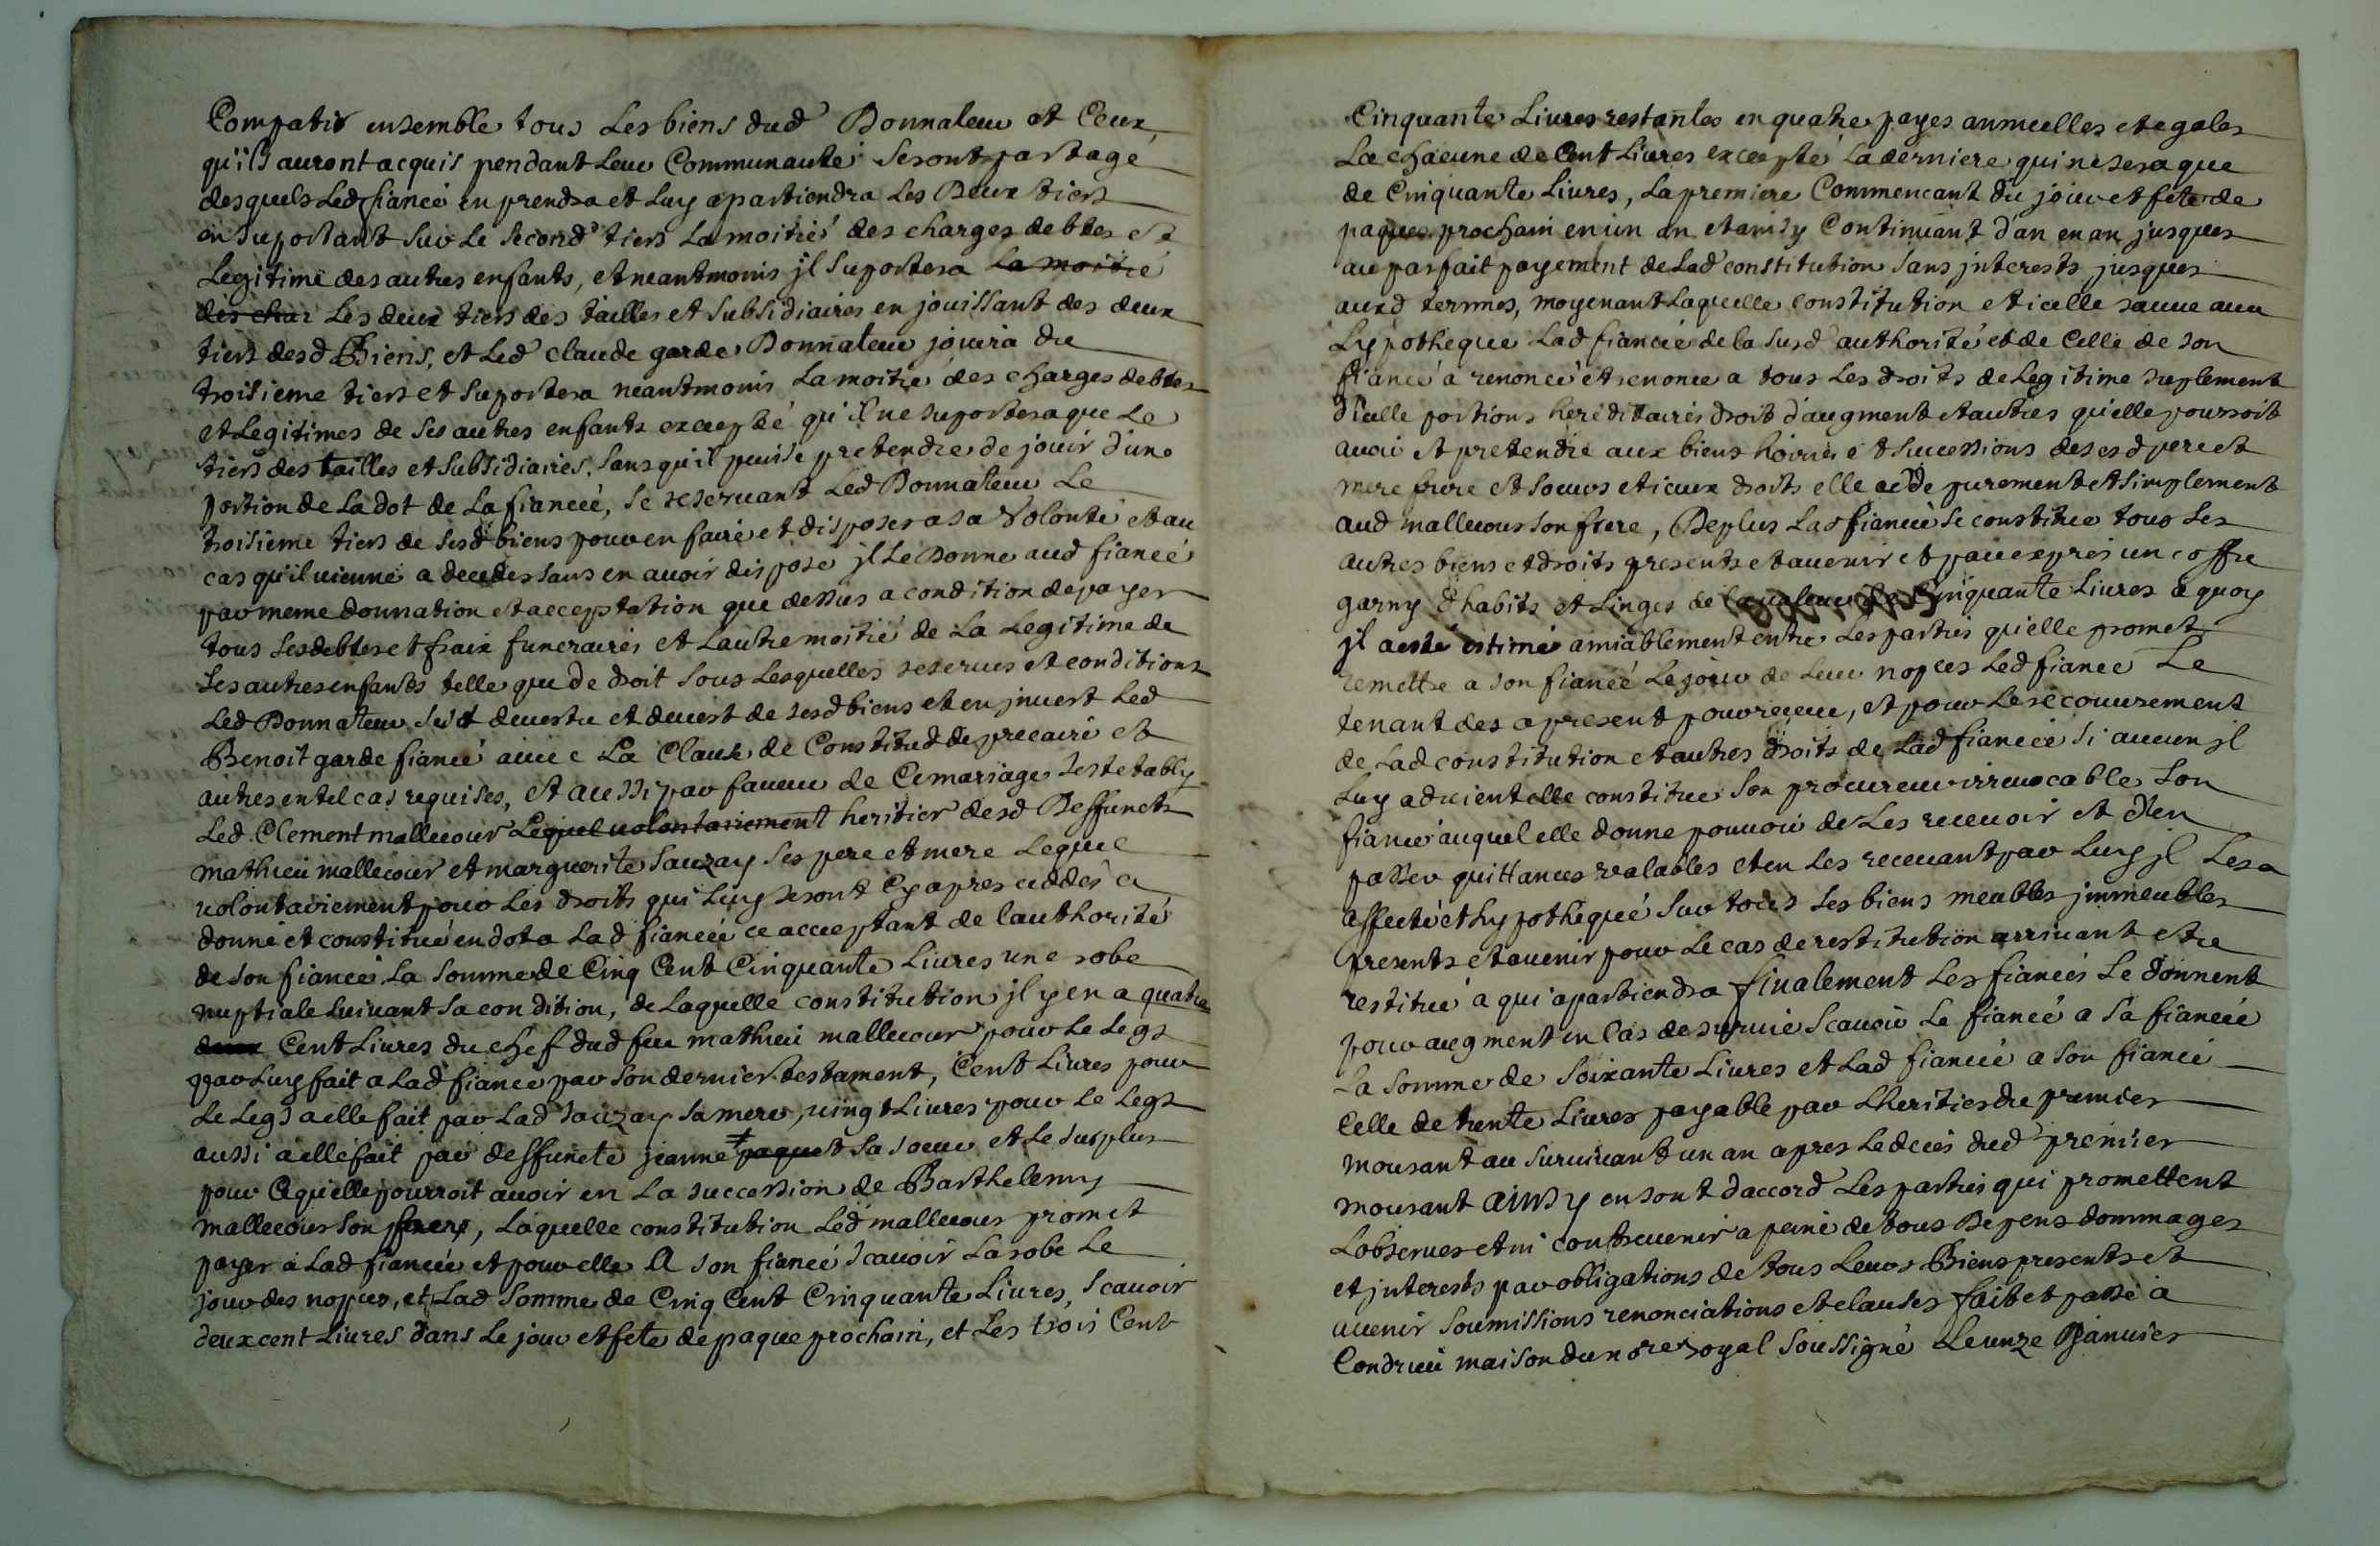 Compatir ensemble tous Les biens dud Donnateur et Ceux
qu'ils auront acquis pendant Leur Communauté Seront partagé
desquels Led fiancé en prendra et Luy apartiendra Les Deux tiers
en Suportant Sur Le Second tiers La moitié des charges debtes et
Legitime des autres enfants, et neantmoins jl Suportera La moitié
des char Les deux tiers des tailles et Subsidiaires en jouissant des deux
tiers desd Biens, et Led claude garde Donnateur jouira du
troisieme tiers et Suportera neantmoins La moitié des charges debtes
et Legitimes de Ses autres enfants excepté qu'il ne Suportera que Le
tiers des tailles et Subsidiaires, Sans qu'il puisse pretendre de jouir d'une
portion de La dot de La fianceé, Se reservant Led Donnateur Le
troisieme tiers de Sesd biens pour en faire et disposer a Sa Volonté et au
cas qu'il vienne a deceder Sans en avoir disposé jl Le Donne aud fiancé
par meme donnation et acceptation que dessus a condition de payer
tous Ses debtes et fraix funeraires et Lautre moitié de La Legitime de
Ses autres enfants telle que de droit Sous Lesquelles reserves et conditions
Led Donnateur Sest devestu et devest de Sesd biens et en jnvest Led
Benoit garde fiancé avec La Clause de Constitud de precaire et
autres en tel cas requises, et aussi par faveur de Ce mariage Sest etably
Led Clement mallecour Lequel volontairement heritier desd Deffuncts
mathieu mallecour et marguerite Sauzay Ses pere et mere Lequel
volontairement pour Les droits qui Luy Seront Cy apres ceddés a
donné et constitué en dot a Lad fianceé ce acceptant de lauthorité
de Son fiancé La Somme de Cinq Cent Cinquante Livres une robe
nuptiale Suivant Sa condition, de Laquelle constitution jl y en a quatre
deux Cent Livres du chef dud feu mathieu mallecour pour Le Legs
par Luy fait a Lad fiancée par Son dernier testament, Cent Livres pour
Le Legs a elle fait par Lad Sauzay Sa mere, vingt Livres pour Le Legs
aussi a elle fait par deffuncte jeanne paquet Sa Soeur et Le Surplus
pour Ce qu'elle pourroit avoir en La Succession de Barthelemy
mallecour Son frere, Laquelle constitution Led mallecour promet
payer a Lad fiancée et pour elle A Son fiancé Scavoir La robe Le
jour des nopces, et Lad Somme de Cinq Cent Cinquante Livres, Scavoir
deux cent Livres dans Le jour et fete de paque prochain, et Les trois Cent
Cinquante Livres restantes en quatre payes annuelles et egales
La chacune de Cent Livres excepté La derniere qui ne Sera que
de Cinquante Livres, La premiere Commencant du jour et fete de
paques prochain en un an et ainsy Continuant d'an en an jusques
au parfait payement de Lad constitution Sans jnterests jusques
auxd termes, moyenant Laquelle constitution et icelle Sauve aux
Lypotheque Lad fiancée de la Susd authorité et de Celle de Son
fiancé a renoncé et renonce a tous Les droits de Legitime Suplement
d'icelle portions hereditaires droit d'augment et autres qu'elle pourroit
avoir et pretendre aux biens hoirie et Successions desesd pere et
mere frere et Soeurs et iceux droits elle cedde purement et Simplement
aud mallecour Son frere, De plus Lad fiancée Se constitue tous Ses
autres biens et droits presents et avenir et par exprés un coffre
garny d'habits et Linges de la valeur de Cinquante Livres a quoy
jl a esté estimé amiablement entre Les parties qu'elle promet
remettre a Son fiancé Le jour de Leur nopces Led fiancé Le
tenant des a present pour receu, et pour Le recouvrement
de Lad constitution et autres droits de Lad fianceé Si aucun jl
Luy advient elle constitue Son procureur irrevocable Son
fiancé auquel elle donne pouvoir de Les recevoir et d'en
passer quittances valables et en Les recevant par Luy jl Les a
affecté et hypothequé Sur tous Ses biens meubles jmmeubles
presents et avenir pour Le cas de restitution arrivant etre
restitué a qui apartiendra finalement Les fiancés Se donnent
pour augment en Cas de Survie Scavoir Le fiancé a Sa fianceé
La Somme de Soixante Livres et Lad fianceé a Son fiancé
Celle de trente Livres payable par Lheritier du premier
mourant au Survivant un an apres Le deces dud premier
mourant ainsy en sont daccord Les parties qui promettent
L'observer et ni contrevenir a peine de tous Depens dommages
et jnterests par obligations de tous Leurs Biens presents et
avenir Soumissions renonciations et clauses fait et passé a
Condrieu maison du nore royal Soussigné Le unze Janvier